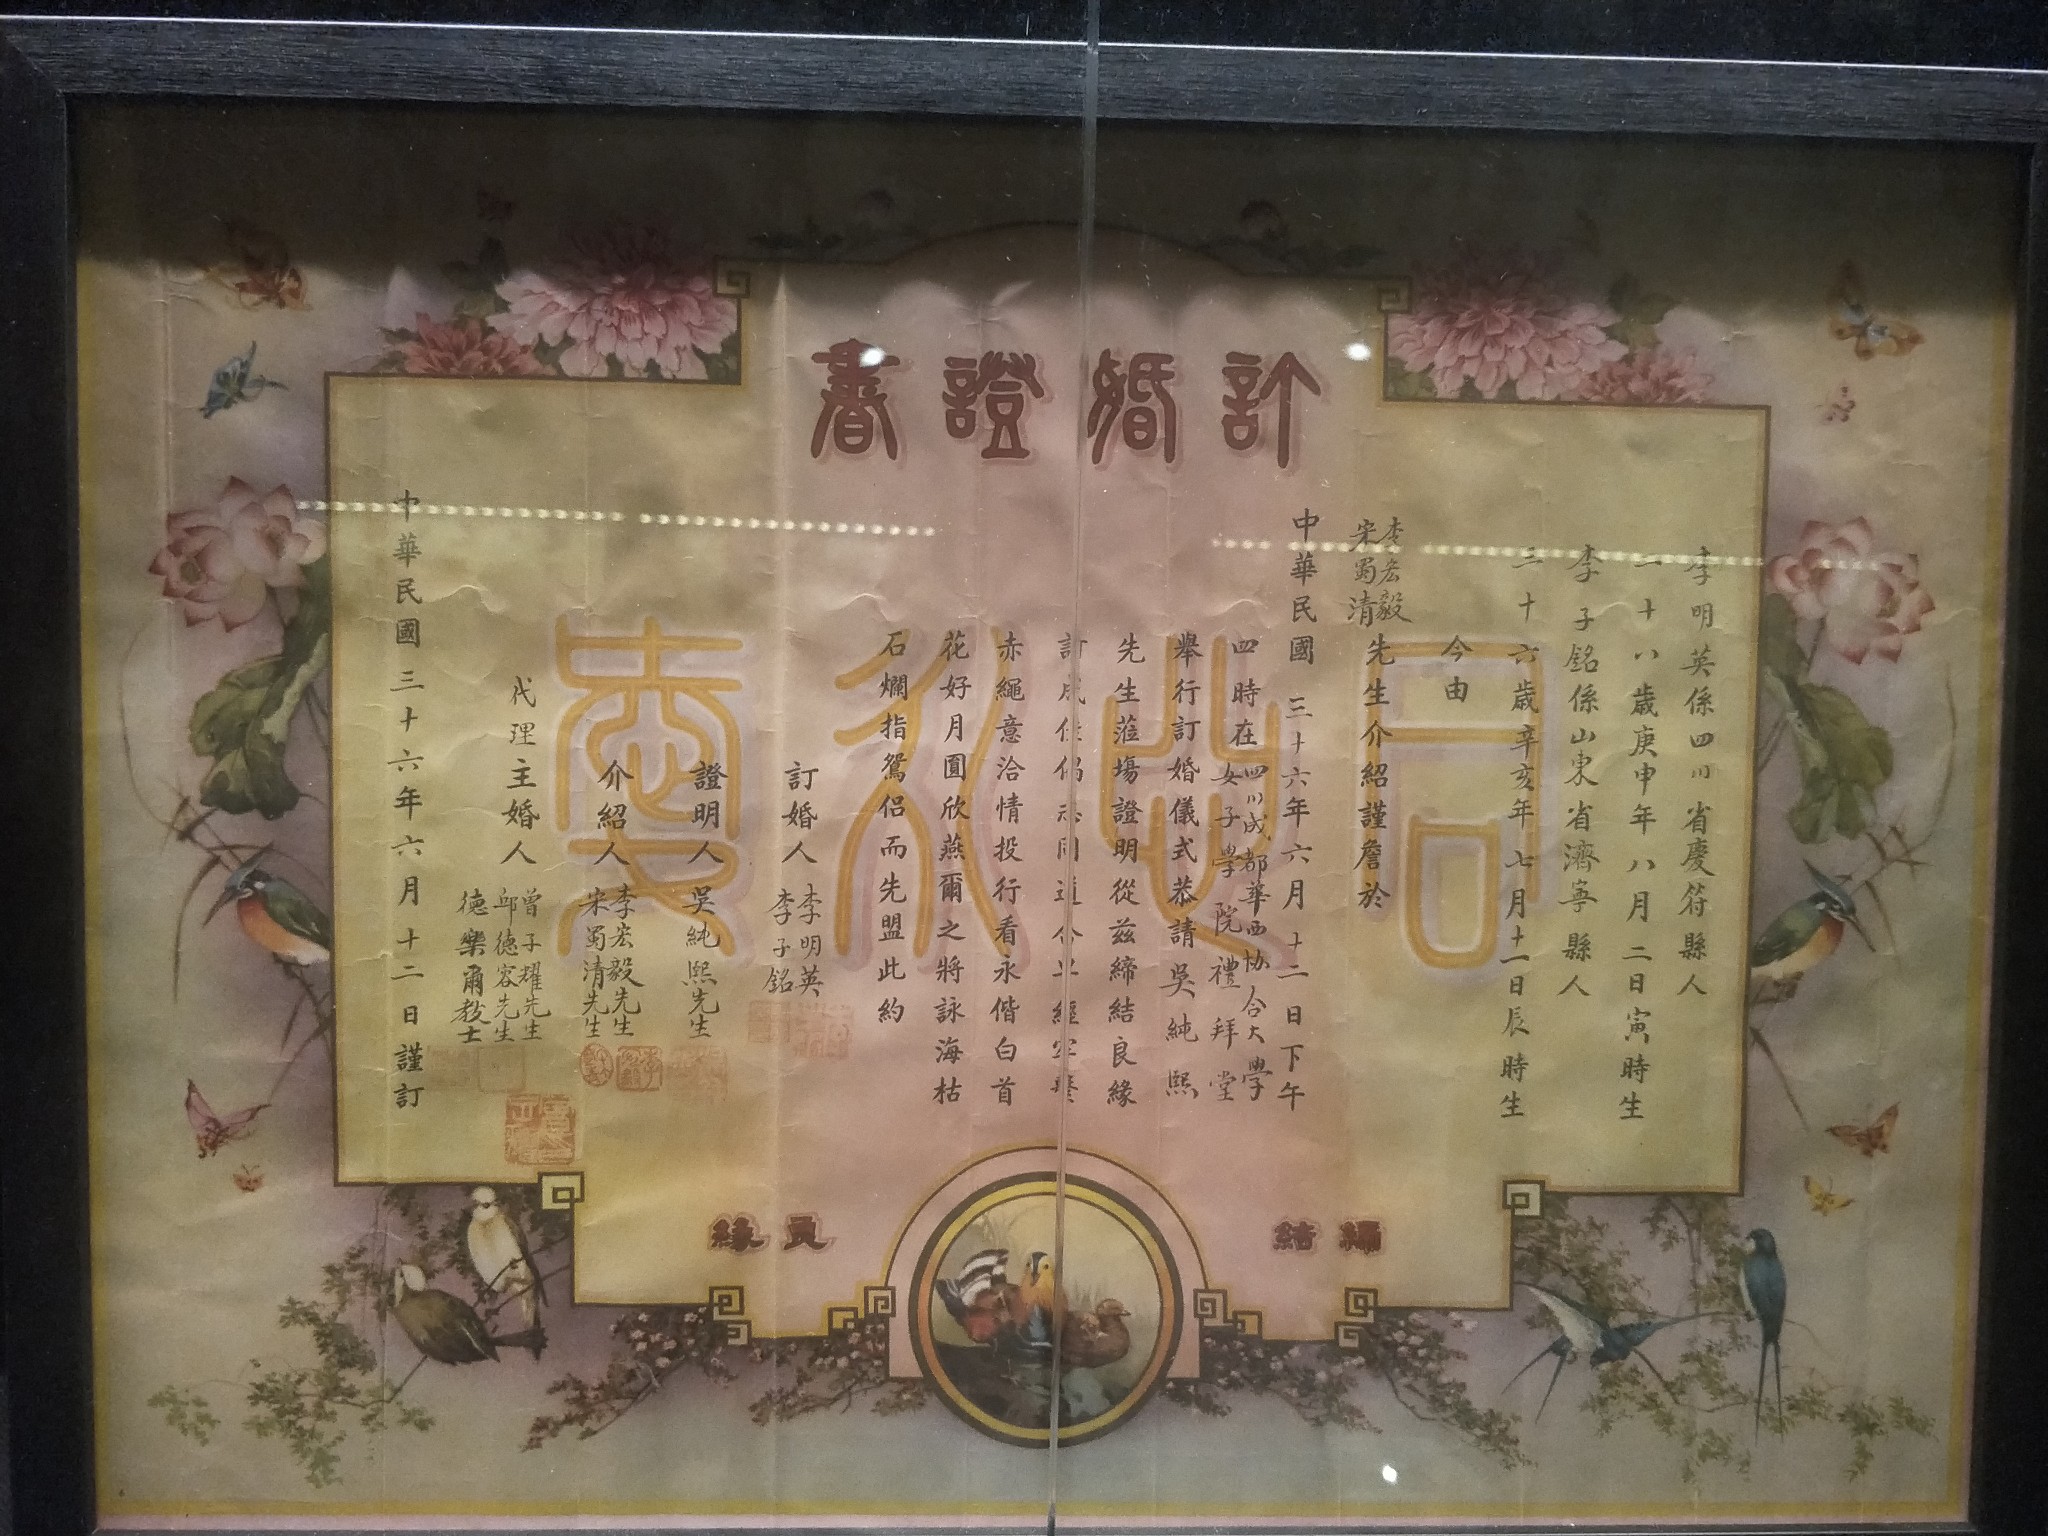 訂婚證書
李明英係四川省慶符縣人
二十八歲庚申年八月二日寅時生
李子銘係山東省濟寧縣人
三十六歲辛亥年七月十一日辰時生
今由
李宏毅
宋蜀清
先生介紹謹詹於
中華民國三十六年六月十二日下午
四時在四川成都華西協合大學
女子學院禮拜堂
舉行訂婚儀式恭請吳純熙
先生蒞場證明從茲締結良緣
訂成佳偶志同道合
赤繩意洽情投行看永偕白首
花好月圓欣燕爾之將詠海枯
石爛指鴛侶而先盟此約
訂婚人 李明英
李子銘
證明人 吳純熙先生
介紹人 李宏毅先生
宋蜀清先生
代理主婚人 曾子耀先生
邱德容先生
德樂爾教士
中華民國三十六年六月十二日謹訂
同心永愛
締結良緣